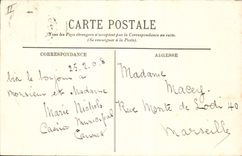 CARTE POSTALE
Tous les Pays étrangers n'acceptent pas la Correspondance au verso.
(Se renseigner à la Poste)
CORRESPONDANCE
ADRESSE
25.2.08
bien le bonjour a
monsieur et Madame
Marie
Casino Municipal
Cannes
Madame
Macey
Rue Monte de Lodi 40
Marseille